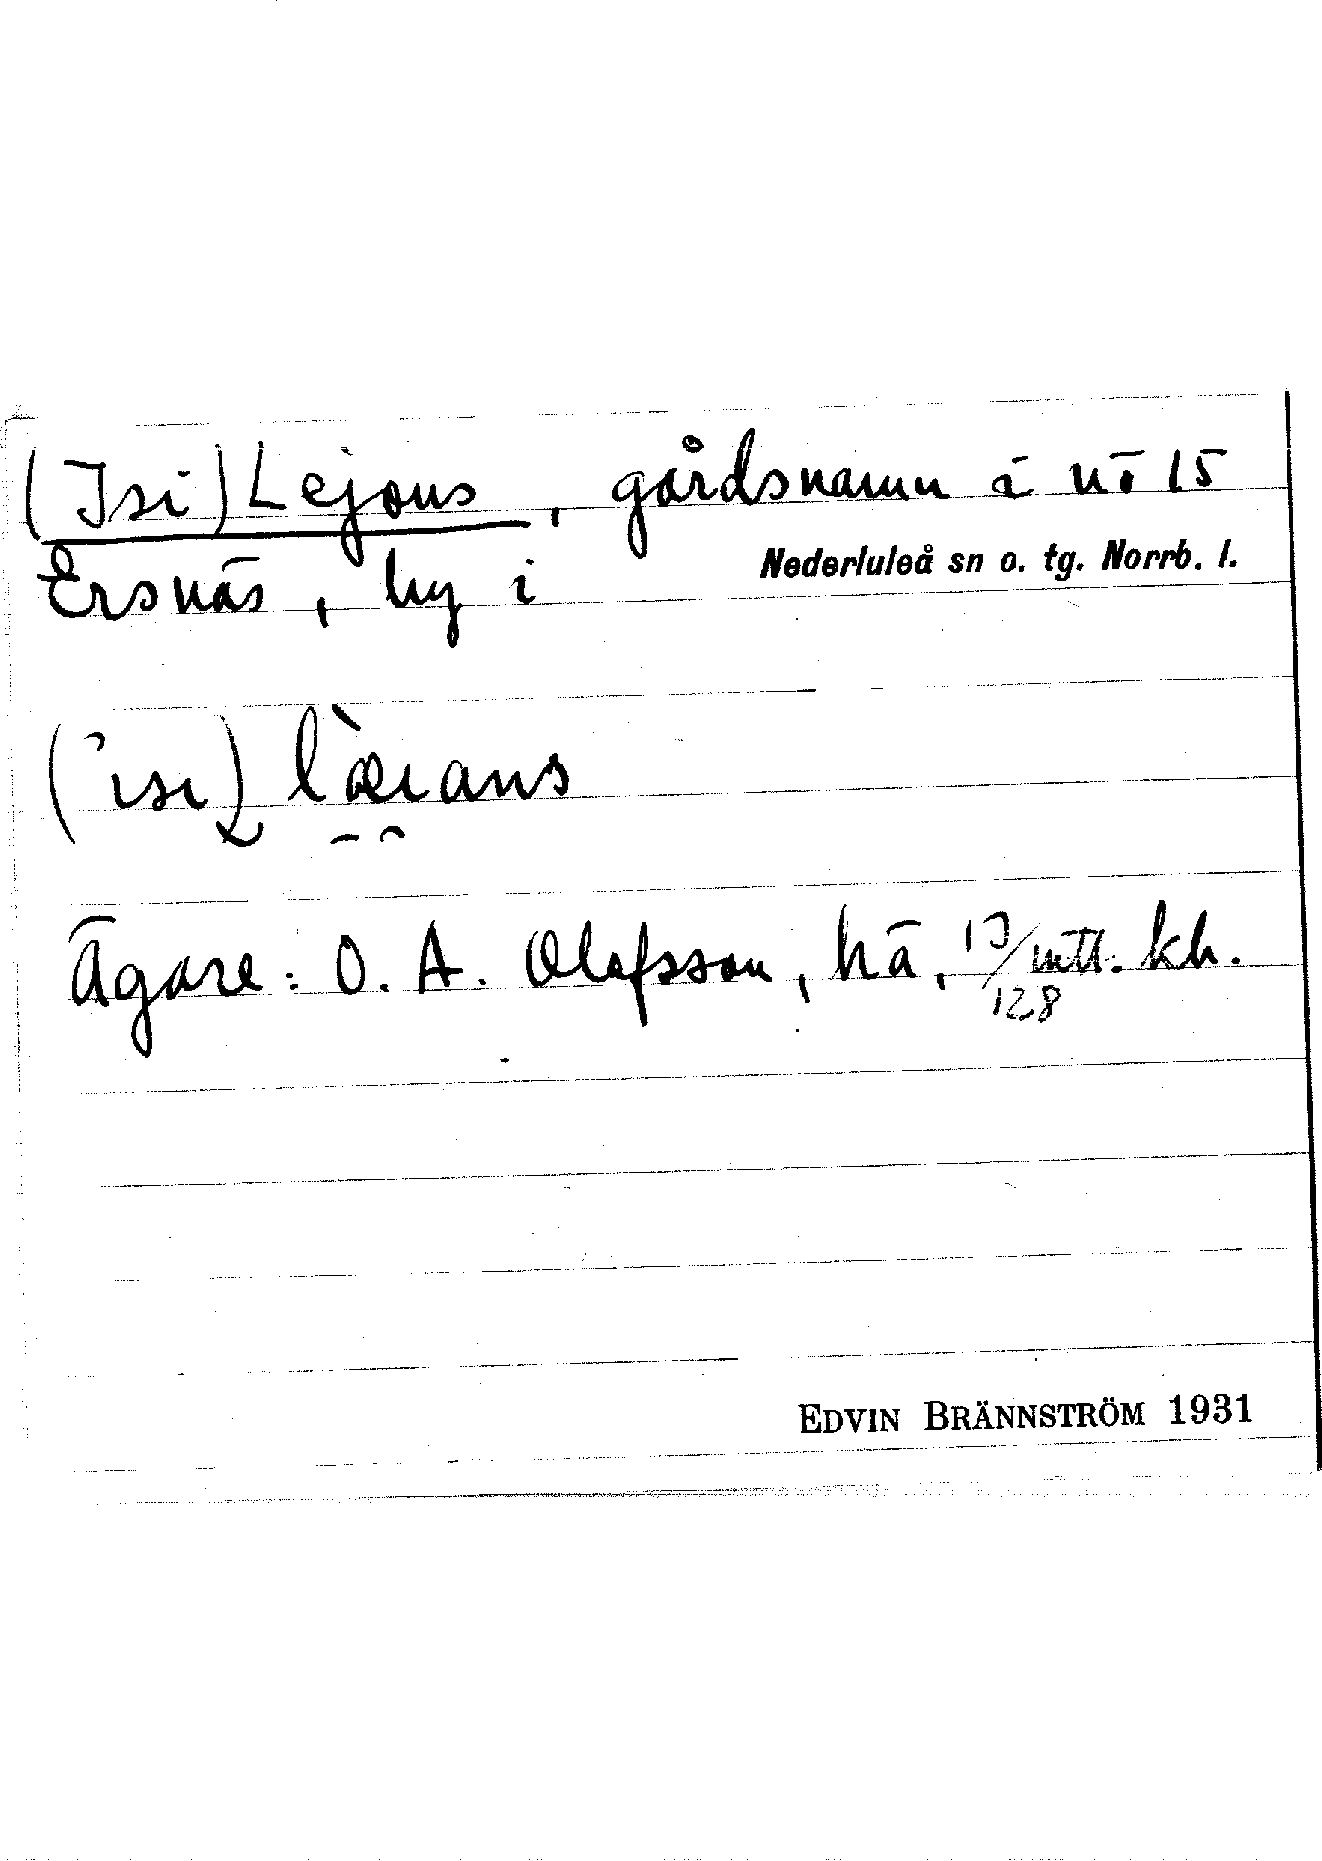 (Isi) Lejons, gårdsnamn å nō 15
Ersnäs, by i Nederluleå sn o. tg. Norrb. l.
(ısı) læ̀ıans
Ägare: O. A. Olofsson, hä, 13/128 mtl. kh.
EDVIN BRÄNNSTRÖM 1931